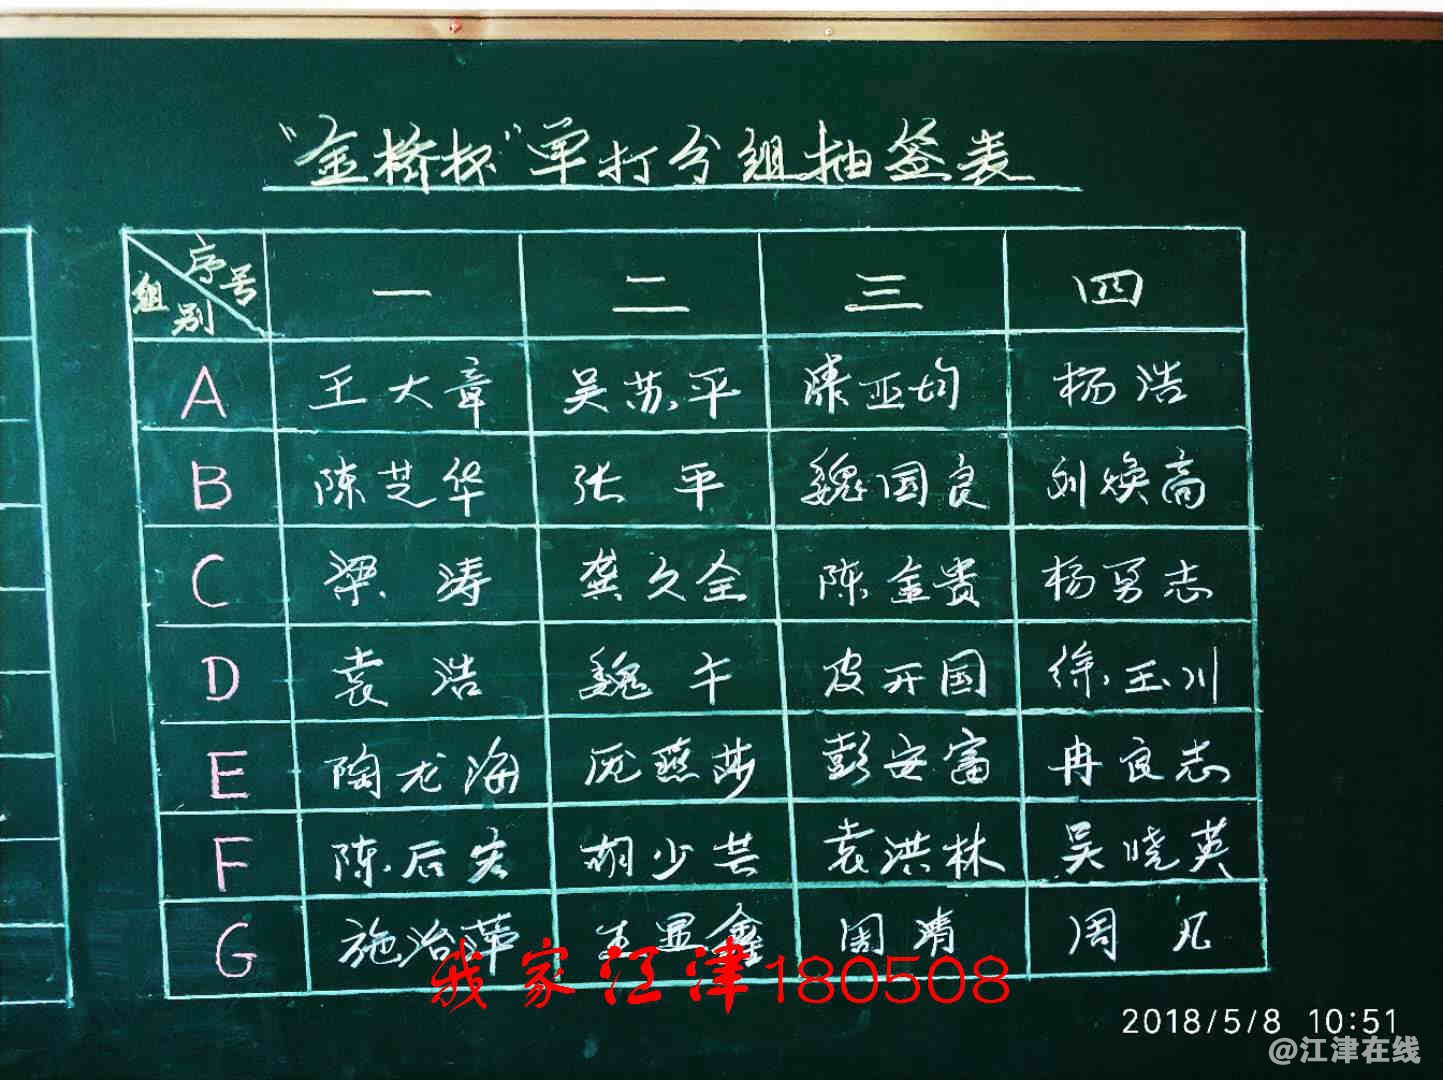 “金桥杯”单打分组抽签表
序号 组别 一 二 三 四
A 王大章 吴苏平 亚均 杨浩
B 陈芝华 张平 魏国良 刘焕高
C 梁涛 龚久全 陈金贵 杨勇志
D 袁浩 魏午 皮开国 徐玉川
E 陶龙海 庞燕莎 彭安富 冉良志
F 陈后宏 胡少芸 袁洪林 吴晓英
G 施治萍 显鑫 周清 周凡
我家江津180508
2018/5/8 10:51
@江津在线